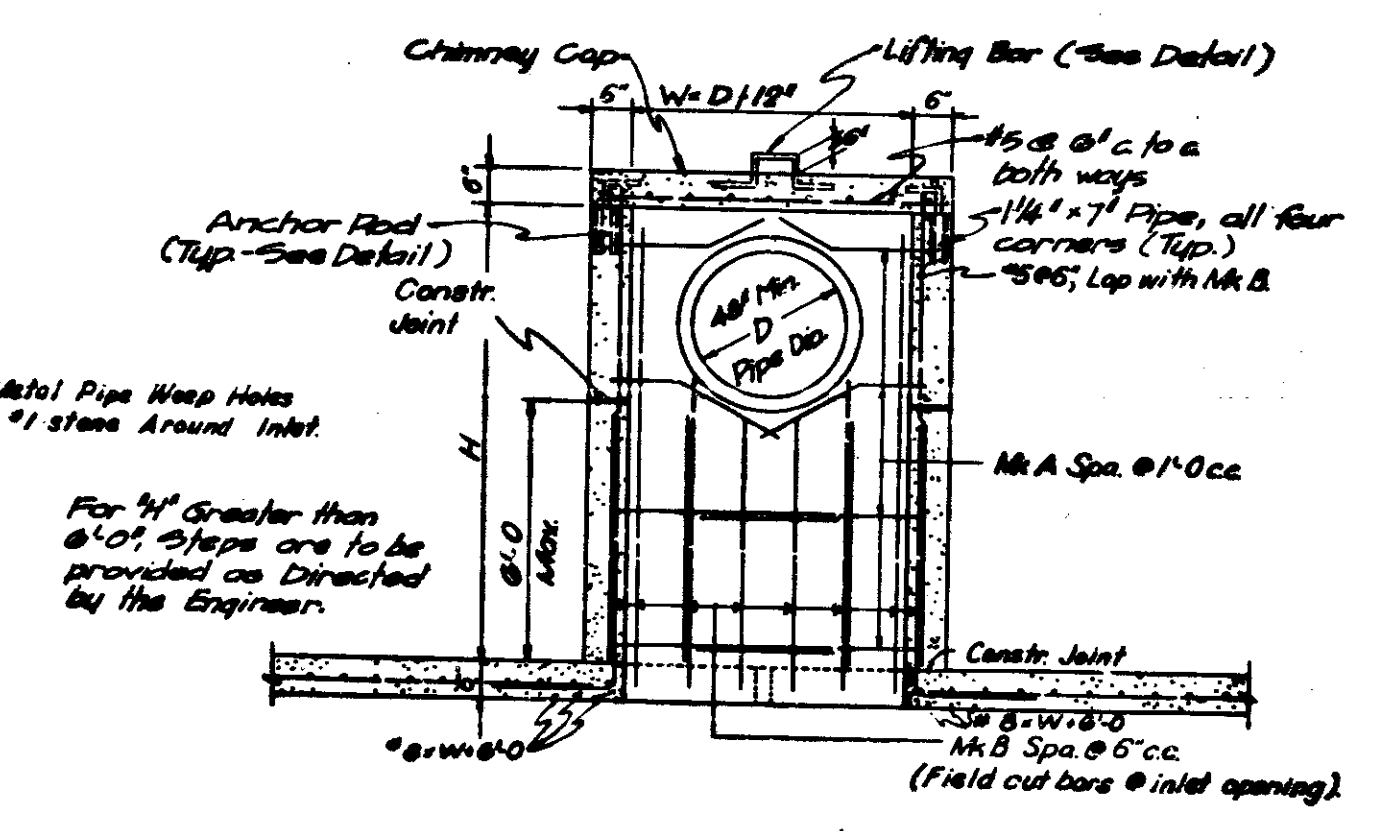 Chimney Cap
Lifting Bar (See Detail)
6"
W= D+12"
6"
6"
#5 @ 6" c. to c.
both ways
6"
Anchor Rod
(Typ.-See Detail)
1¼" x 7" Pipe, all four
corners (Typ.)
#5@6", Lap with Mk B.
Constr.
Joint
48" Min.
D
Pipe Dia.
Metal Pipe Weep Holes
#1 stone Around Inlet.
H
Mk A Spa. @ 1'-0 c.c.
For "H" Greater than
6'-0", Steps are to be
provided as Directed
by the Engineer.
6'-0
Max.
Constr. Joint
6"
#8=W+6'-0
#8=W+6'-0
Mk B Spa. @ 6" c.c.
(Field cut bars @ inlet opening).